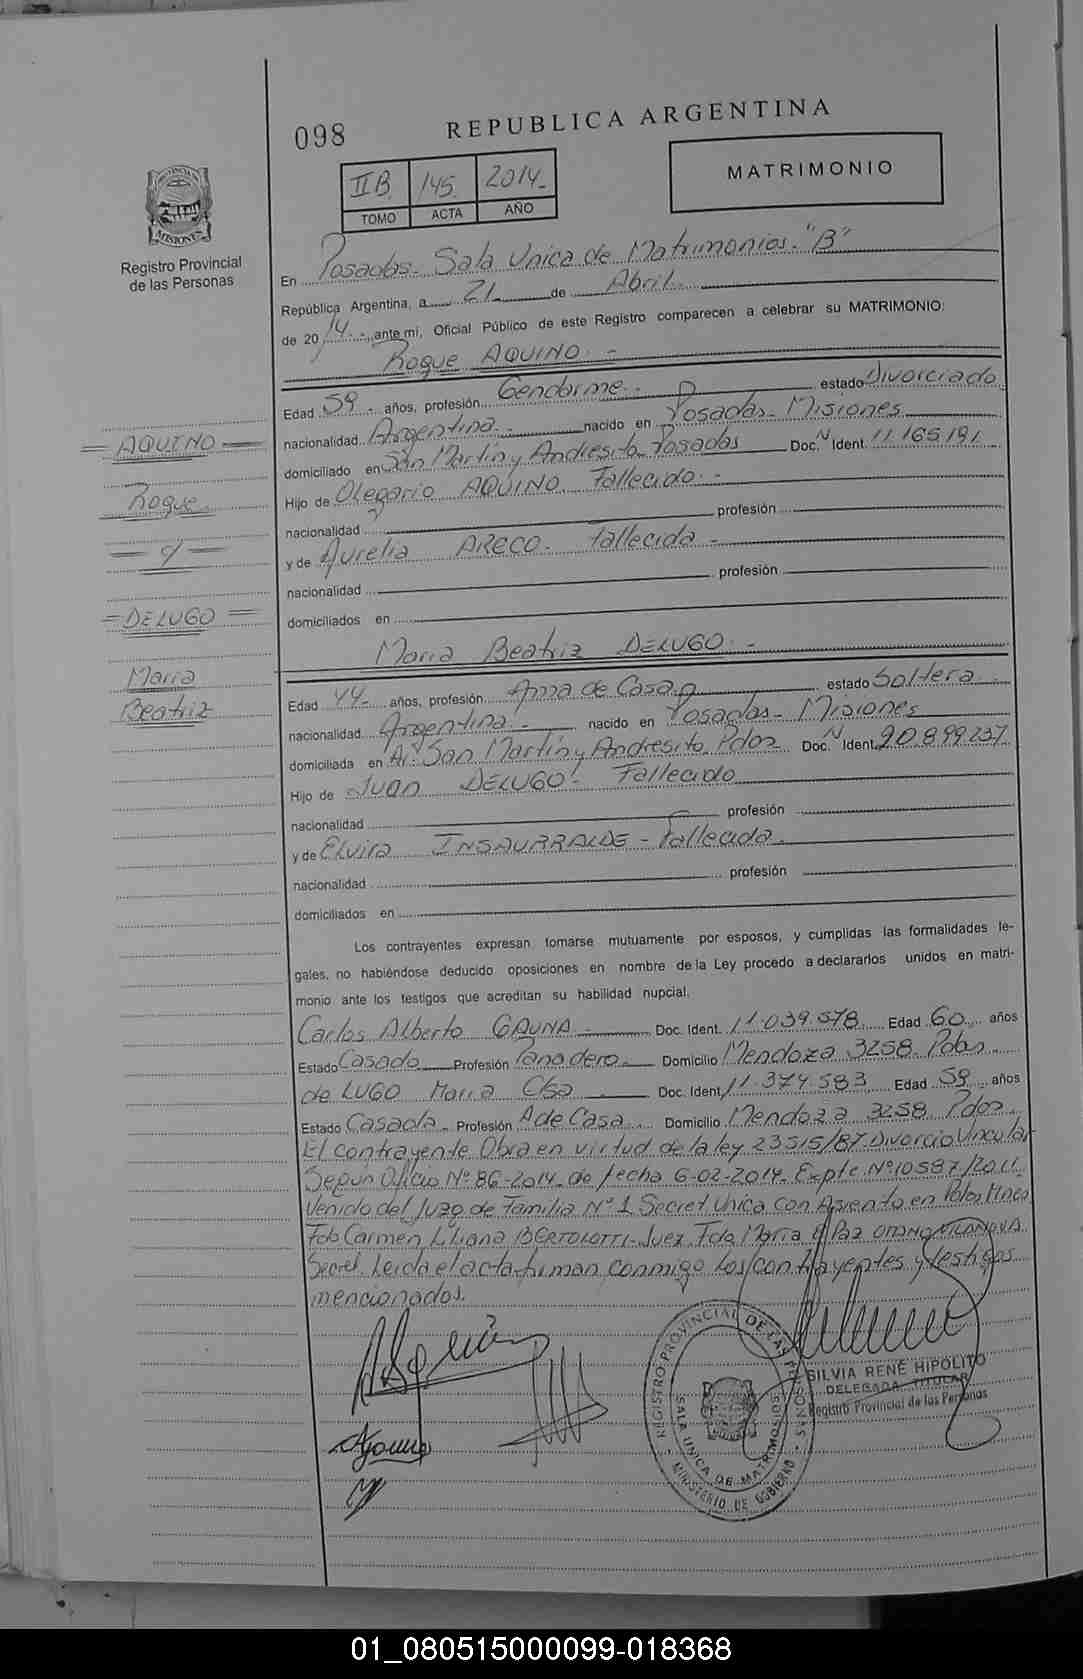 098
REPUBLICA ARGENTINA
IIB 145 2014-
TOMO ACTA AÑO
MATRIMONIO
PROVINCIA
MISIONES
Registro Provincial
de las Personas
En Posadas- Sala Unica de Matrimonios- "B"
República Argentina, a 21 de Abril.
de 2014.-, ante mi, Oficial Público de este Registro comparecen a celebrar su MATRIMONIO:
Roque AQUINO.-
Edad 59. años, profesión Gendarme.- estado Divorciado
nacionalidad Argentina.- nacido en Posadas- Misiones
domiciliado en San Martin y Andresito Posadas Doc. N Ident. 11.165.191.
Hijo de Olegario AQUINO. Fallecido.-
nacionalidad profesión
y de Aurelia ARECO- Fallecida-
nacionalidad profesión
domiciliados en
= AQUINO =
Roque.
= c/ =
= DELUGO =
Maria
Beatriz
Maria Beatriz DELUGO.-
Edad 44- años, profesión Ama de Casa estado Soltera.
nacionalidad Argentina.- nacido en Posadas- Misiones
domiciliada en Av. San Martin y Andresito Pdas Doc. N Ident. 20.899.237.
Hijo de Juan DELUGO- Fallecido
nacionalidad profesión
y de Elvira INSAURRALDE- Fallecida.
nacionalidad profesión
domiciliados en
Los contrayentes expresan tomarse mutuamente por esposos, y cumplidas las formalidades le-
gales, no habiéndose deducido oposiciones en nombre de la Ley procedo a declararlos unidos en matri-
monio ante los testigos que acreditan su habilidad nupcial.
Carlos Alberto GAUNA- Doc. Ident. 11.039.578. Edad 60 años
Estado Casado Profesión Panadero- Domicilio Mendoza 3258. Pdas-
de LUGO Maria Elsa Doc. Ident. 11.374.583 Edad 59 años
Estado Casada- Profesión A de Casa Domicilio Mendoza 3258. Pdas.
El contrayente Obra en virtud de la ley 23515/87. Divorcio Vincular
Segun Oficio Nº 86-2014- de fecha 6-02-2014- Expte Nº 10587/2011
Venido del Juzg. de Familia Nº 1 Secret. Unica con Asiento en Pdas. Mnes
Fdo Carmen Liliana BERTOLOTTI- Juez Fdo. Maria Paz OTAÑO VILANOVA
Secret. Leida el acta firman conmigo los contrayentes y testigos
mencionados.
REGISTRO PROVINCIAL DE LAS PERSONAS
SALA UNICA DE MATRIMONIOS
MINISTERIO DE GOBIERNO
SILVIA RENÉ HIPOLITO
DELEGADA TITULAR
Registro Provincial de las Personas
01_080515000099-018368